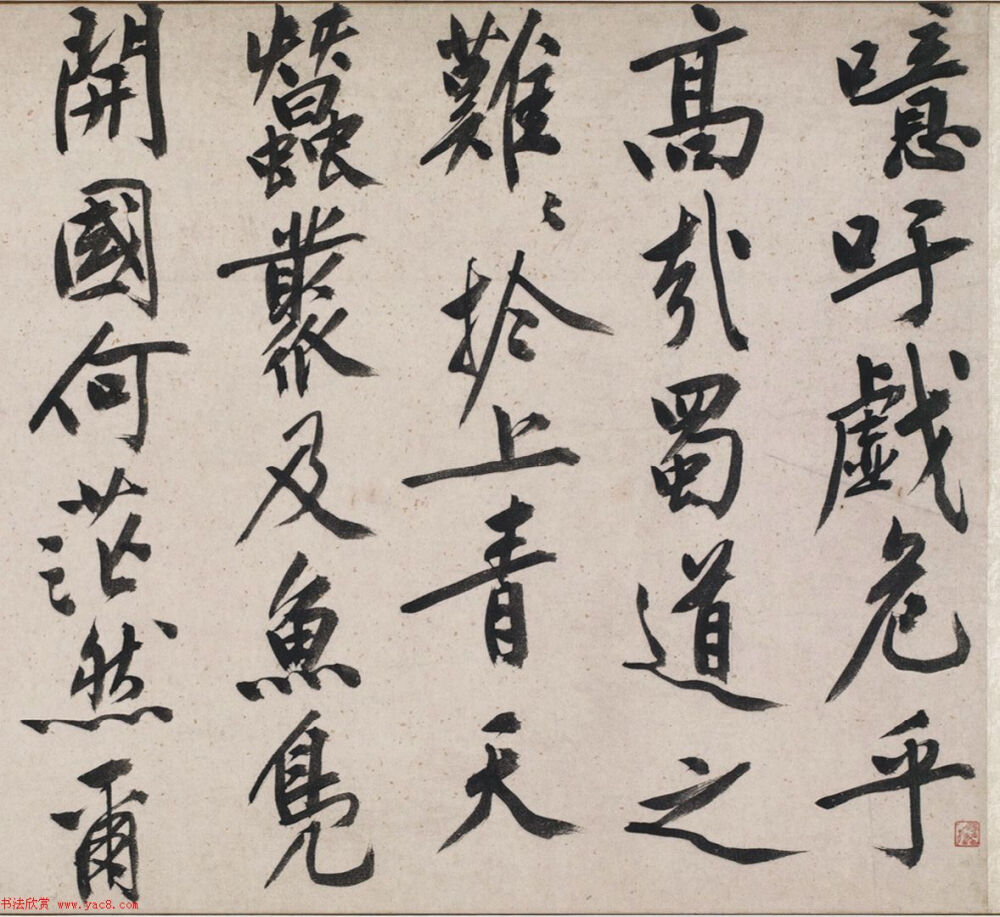 噫吁戲危乎
高哉蜀道之
難〻於上青天
蠶叢及魚鳧
開國何茫然爾
书法欣赏 www.yac8.com